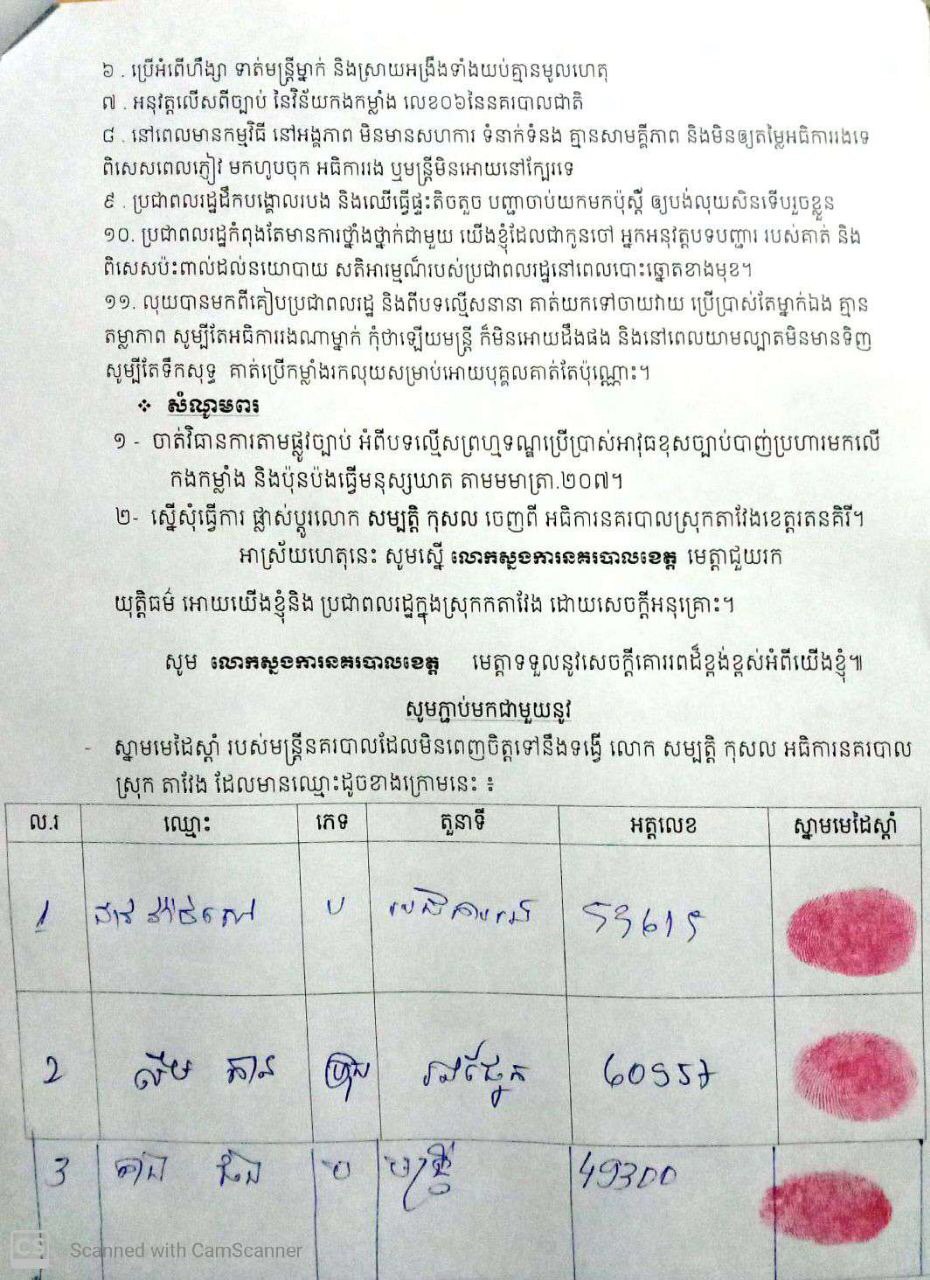 ៦ . ប្រើអំពើហឹង្សា ទាត់មន្ត្រីម្នាក់ និងស្រាយអង្រឹងទាំងយប់គ្មានមូលហេតុ
៧ . អនុវត្តលើសពីច្បាប់ នៃវិន័យកងកម្លាំង លេខ០៦នៃនគរបាលជាតិ
៨ . នៅពេលមានកម្មវិធី នៅអង្គភាព មិនមានសហការ ទំនាក់ទំនង គ្មានសាមគ្គីភាព និងមិនឲ្យតម្លៃអធិការរងទេ
ពិសេសពេលភ្ញៀវ មកហូបចុក អធិការរង ឬមន្ត្រីមិនអោយនៅក្បែរទេ
៩ . ប្រជាពលរដ្ឋដឹកបង្គោលរបង និងឈើធ្វើផ្ទះតិចតួច បញ្ជាចាប់យកមកប៉ុស្តិ៍ ឲ្យបង់លុយសិនទើបរួចខ្លួន
១០. ប្រជាពលរដ្ឋកំពុងតែមានការថ្នាំងថ្នាក់ជាមួយ យើងខ្ញុំដែលជាកូនចៅ អ្នកអនុវត្តបទបញ្ជារ របស់គាត់ និង
ពិសេសប៉ះពាល់ដល់នយោបាយ សតិអារម្មណ៍របស់ប្រជាពលរដ្ឋនៅពេលបោះឆ្នោតខាងមុខ។
១១. លុយបានមកពីគៀបប្រជាពលរដ្ឋ និងពីបទល្មើសនានា គាត់យកទៅចាយវាយ ប្រើប្រាស់តែម្នាក់ឯង គ្មាន
តម្លាភាព សូម្បីតែអធិការរងណាម្នាក់ កុំថាឡើយមន្ត្រី ក៏មិនអោយដឹងផង និងនៅពេលយាមល្បាតមិនមានទិញ
សូម្បីតែទឹកសុទ្ធ គាត់ប្រើកម្លាំងរកលុយសម្រាប់អោយបុគ្គលគាត់តែប៉ុណ្ណោះ។
❖ សំណូមពរ
១ - ចាត់វិធានការតាមផ្លូវច្បាប់ អំពីបទល្មើសព្រហ្មទណ្ឌប្រើប្រាស់អាវុធខុសច្បាប់បាញ់ប្រហារមកលើ
កងកម្លាំង និងប៉ុនប៉ងធ្វើមនុស្សឃាត តាមមមាត្រា.២០៧។
២- ស្នើសុំធ្វើការ ផ្លាស់ប្ដូរលោក សម្បត្តិ កុសល ចេញពី អធិការនគរបាលស្រុកតាវែងខេត្តរតនគិរី។
អាស្រ័យហេតុនេះ សូមស្នើ លោកស្នងការនគរបាលខេត្ត មេត្តាជួយរក
យុត្តិធម៌ អោយយើងខ្ញុំនិង ប្រជាពលរដ្ឋក្នុងស្រុកកតាវែង ដោយសេចក្ដីអនុគ្រោះ។
សូម លោកស្នងការនគរបាលខេត្ត មេត្តាទទួលនូវសេចក្ដីគោររពដ៏ខ្ពង់ខ្ពស់អំពីយើងខ្ញុំ៕
សូមភ្ជាប់មកជាមួយនូវ
- ស្នាមមេដៃស្ដាំ របស់មន្ត្រីនគរបាលដែលមិនពេញចិត្តទៅនឹងទង្វើ លោក សម្បត្តិ កុសល អធិការនគរបាល
ស្រុក តាវែង ដែលមានឈ្មោះដូចខាងក្រោមនេះ ៖
ល.រ ឈ្មោះ ភេទ តួនាទី អត្តលេខ ស្នាមមេដៃស្ដាំ
1 ប
2 ប្រុស
3 ប មន្ត្រី 49300
CS Scanned with CamScanner